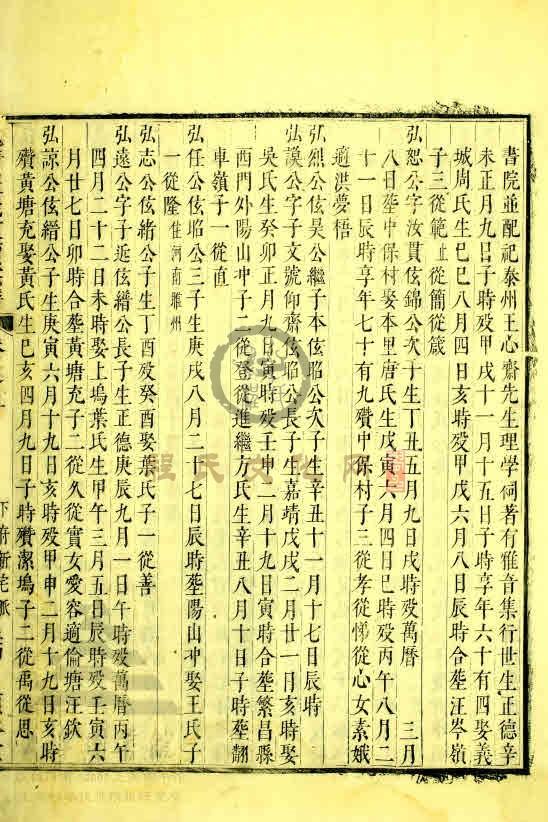 書院並配祀泰州王心齋先生理學祠著有雅音集行世生正德辛
未正月九日子時歿甲戌十一月十五日子時享年六十有四娶義
城周氏生己巳八月四日亥時歿甲戌六月八日辰時合塟汪岑嶺
子三從範 從簡從箴
弘恕公字汝貫伭錦公次子生丁丑五月九日戌時歿萬曆 三月
八日塟中保村娶本里唐氏生戊寅六月四日巳時歿丙午八月二
十一日辰時享年七十有九殯中保村子三從孝從悌從心女素娥
適洪夢梧
弘烈公伭昊公繼子本伭昭公次子生辛丑十一月十七日辰時
弘謨公字子文號仰齋伭昭公長子生嘉靖戊戌二月廿一日亥時娶
吳氏生癸卯正月九日寅時歿壬申二月十九日寅時合塟繁昌縣
西門外陽山冲子二從登從進繼方氏生辛丑八月十日子時塟翻
車嶺子一從直
弘任公伭昭公三子生庚戌八月二十七日辰時塟陽山冲娶王氏子
一從隆住河南雎州
弘志公伭緒公子生丁酉歿癸酉娶葉氏子一從善
弘遠公字子延伭縉公長子生正德庚辰九月一日午時歿萬曆丙午
四月二十二日未時娶上塢葉氏生甲午三月五日辰時歿壬寅六
月廿七日卯時合塟黃塘充子二從久從實女愛容適倫塘汪欽
弘諒公伭縉公子生庚寅六月十九日亥時歿甲申二月十九日亥時
殯黃塘充娶黃氏生己亥四月九日子時殯潔塢子二從禹從思
程氏文化网